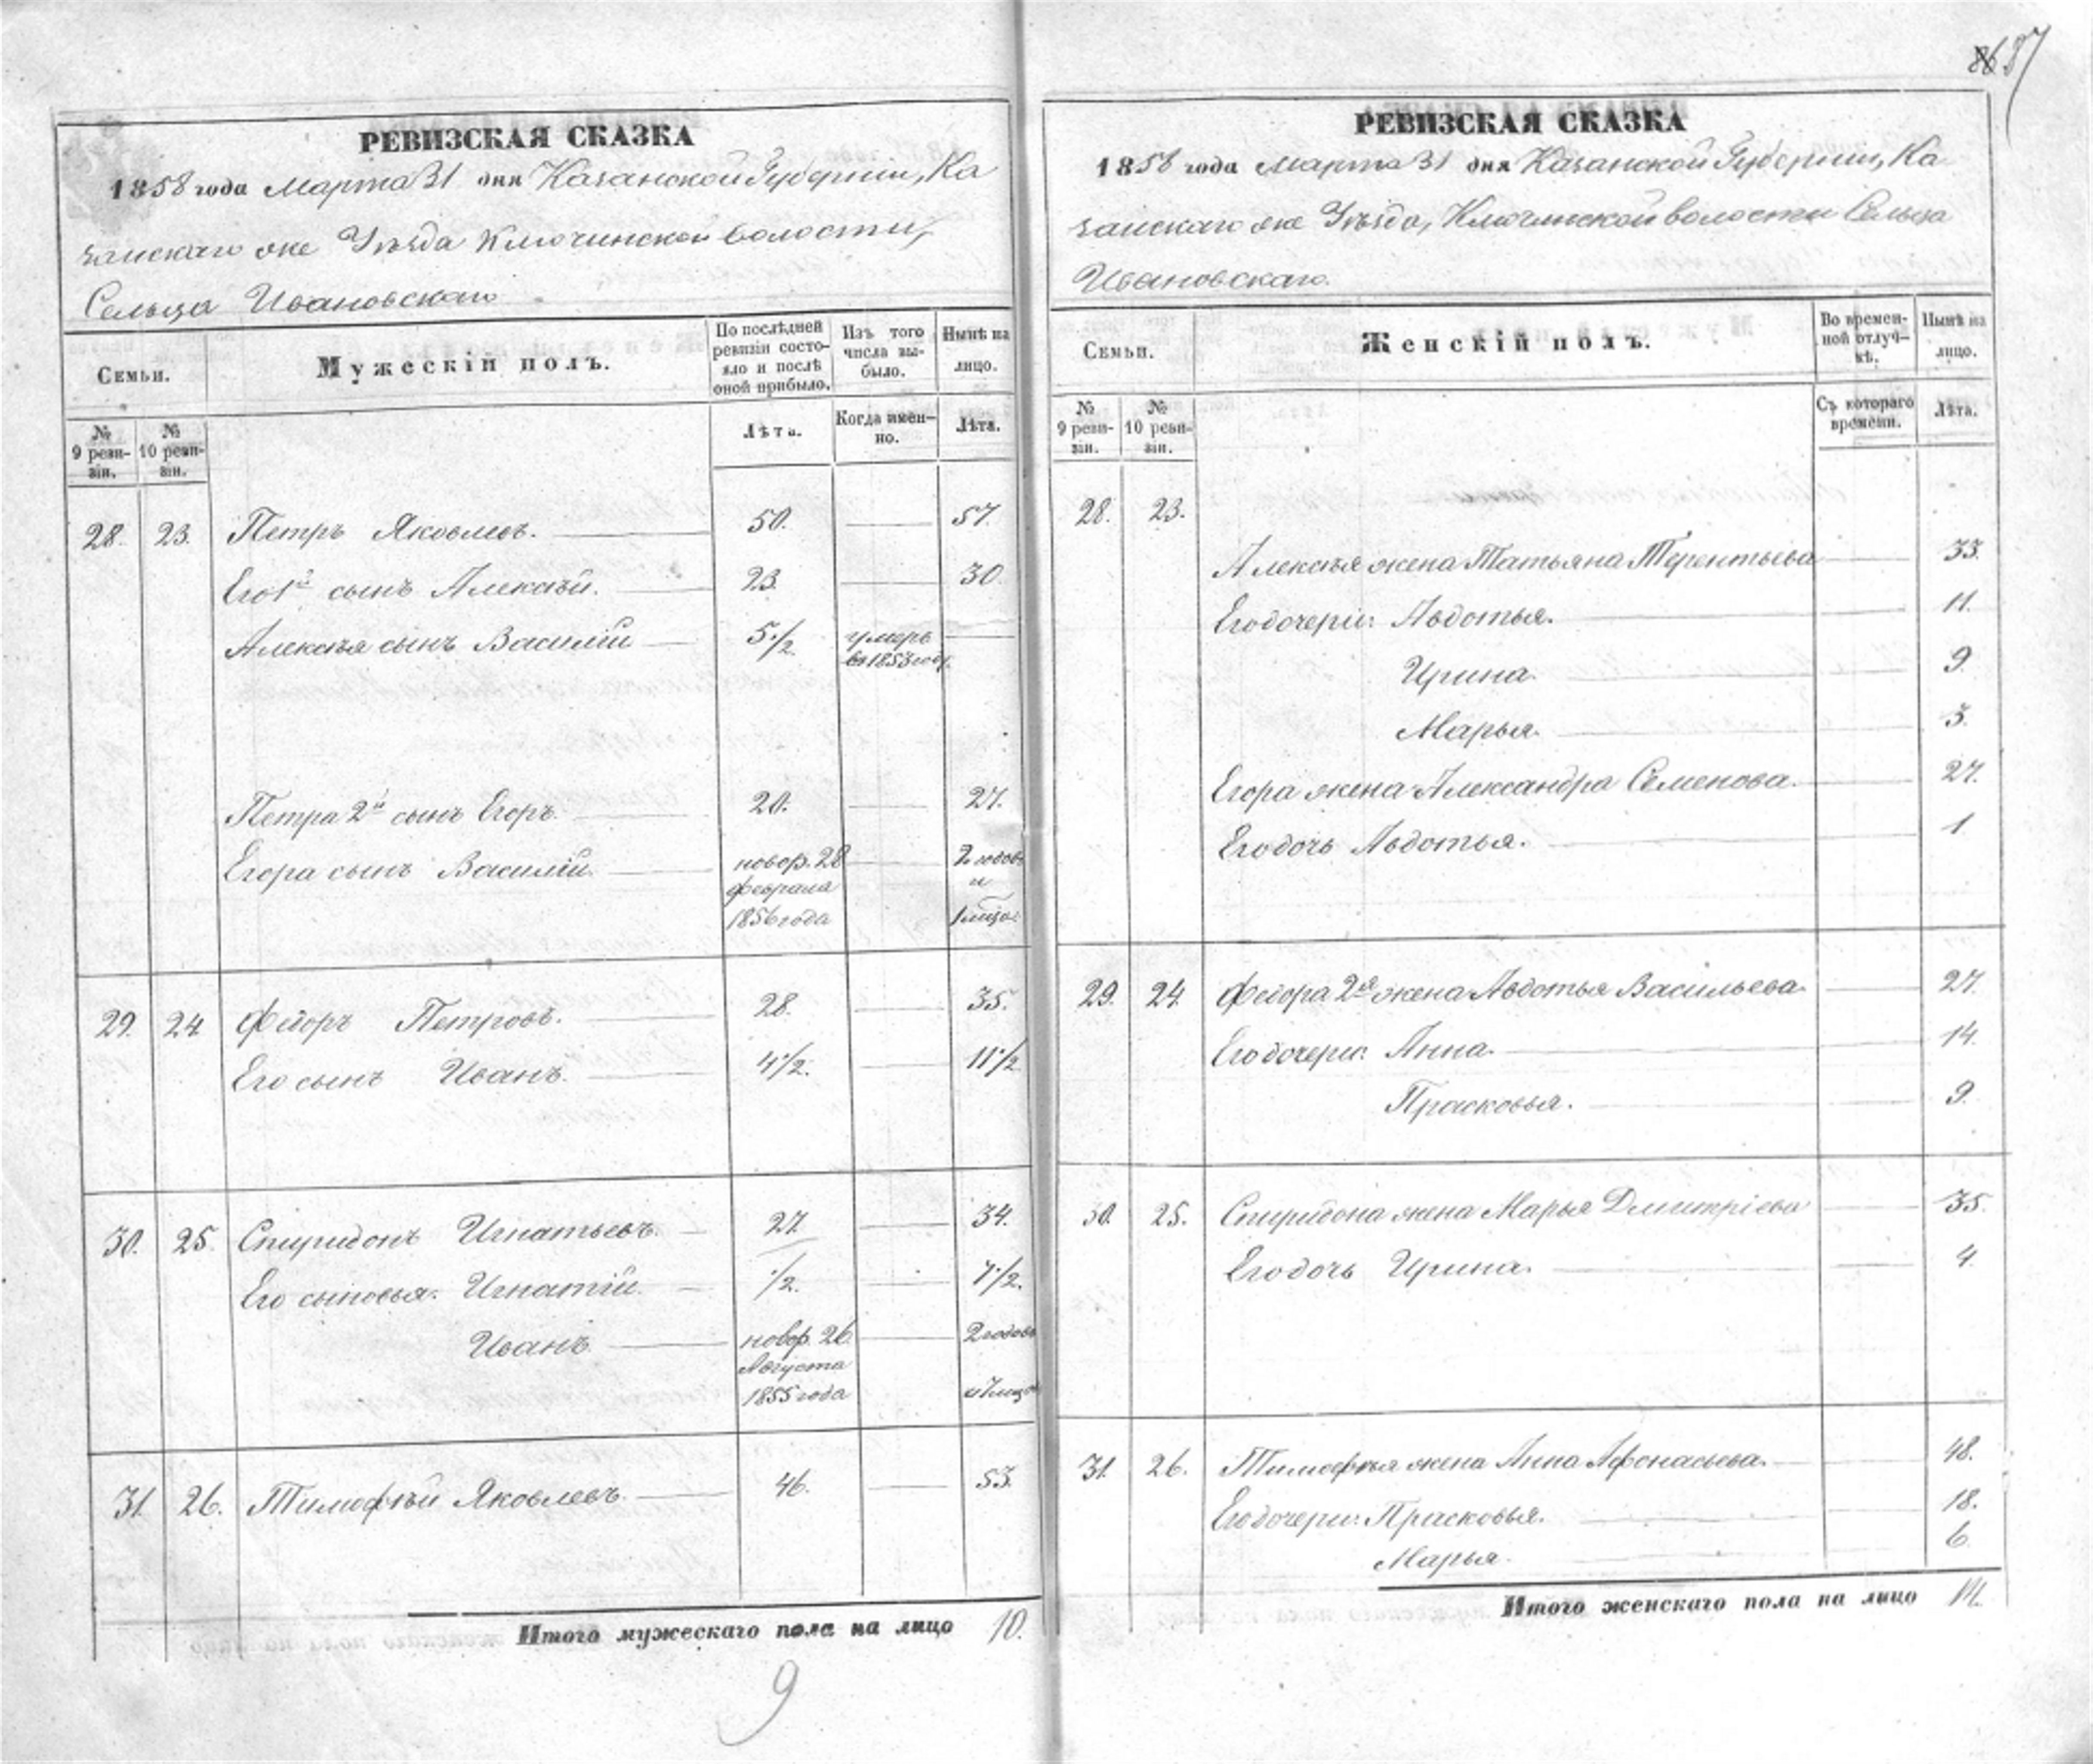 87
РЕВИЗСКАЯ СКАЗКА
1858 года Марта 31 дня Казанской Губернии, Ка
занскаго же Уѣзда Ключинской волости,
Сельца Ивановскаго
Семьи.
Мужескій полъ.
По послѣдней ревизіи состояло и послѣ оной прибыло.
Изъ того числа выбыло.
Нынѣ на лицо.
№ 9 ревизіи.
№ 10 ревизіи.
Лѣта.
Когда именно.
Лѣта.
28. 23. Петръ Яковлевъ. 50. 57.
Его 1й сынъ Алексѣй. 23. 30.
Алексѣя сынъ Василій 5 1/2 умеръ въ 1853 году.
Петра 2й сынъ Егоръ. 20. 27.
Егора сынъ Василій. новор. 28 февраля 1856 года 2 годовъ и 1 мѣся
29. 24. Ѳедоръ Петровъ. 28. 35.
Его сынъ Иванъ. 4 1/2. 11 1/2
30. 25. Спиридонъ Игнатьевъ. 27. 34.
Его сыновья: Игнатій. 1/2. 7 1/2.
Иванъ. новор. 26 Августа 1855 года 2 годовъ и 7 мѣся
31. 26. Тимофѣй Яковлевъ. 46. 53.
Итого мужескаго пола на лицо 10.
9
РЕВИЗСКАЯ СКАЗКА
1858 года Марта 31 дня Казанской Губернии, Ка
занскаго же Уѣзда, Ключинской волости Сельца
Ивановскаго.
Семьи.
Женскій полъ.
Во временной отлучкѣ.
Нынѣ на лицо.
№ 9 ревизіи.
№ 10 ревизіи.
Съ котораго времени.
Лѣта.
28. 23.
Алексѣя жена Татьяна Терентьева 33.
Его дочери: Авдотья. 11.
Ирина. 9.
Марья. 3.
Егора жена Александра Семенова. 27.
Его дочь Авдотья. 1
29. 24. Ѳедора 2я жена Авдотья Васильева 27.
Его дочери: Анна. 14.
Прасковья. 9.
30. 25. Спиридона жена Марья Дмитріева 35.
Его дочь Ирина. 4.
31. 26. Тимофѣя жена Анна Афонасьева. 48.
Его дочери: Прасковья. 18.
Марья. 6
Итого женскаго пола на лицо 14.